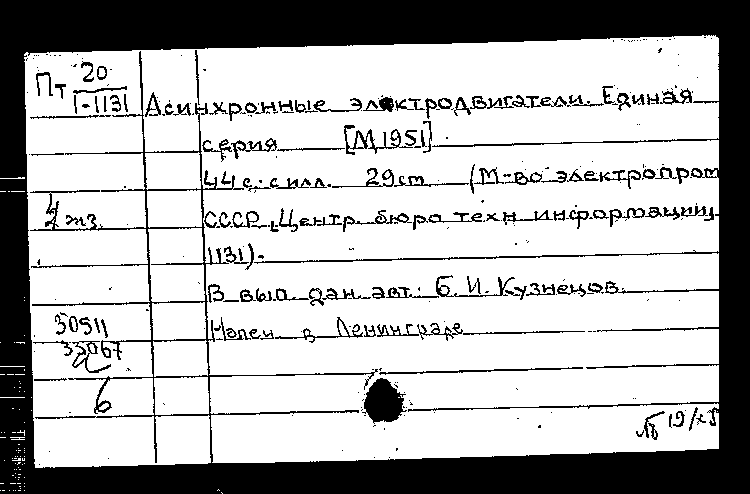 Пт 20
1-1131
Асинхронные электродвигатели. Единая
серия [М, 1951]
44 с. с илл. 29 см (М-во электропром
СССР, Центр. бюро техн информации,
1131).
2 экз.
В вып. дан. авт.: Б. И. Кузнецов.
Напеч. в Ленинграде
30911
33067
6